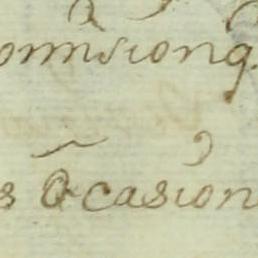 omision q.
s Ocasion